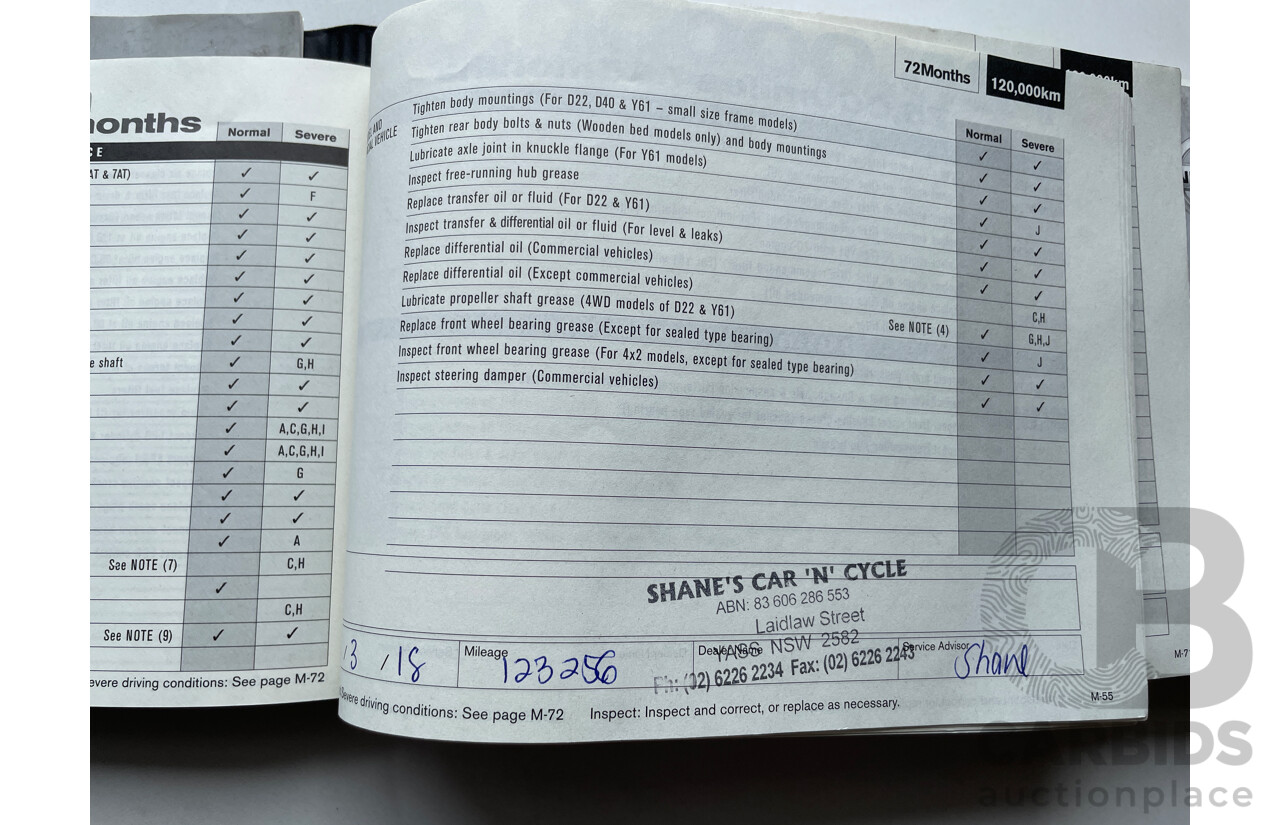 onths
Normal Severe
CE
AT & 7AT) ✓ ✓
✓ F
✓ ✓
✓ ✓
✓ ✓
✓ ✓
✓ ✓
✓ ✓
✓ ✓
e shaft ✓ G,H
✓ ✓
✓ ✓
✓ A,C,G,H,I
✓ A,C,G,H,I
✓ G
✓ ✓
✓ ✓
✓ A
See NOTE (7) C,H
✓
C,H
See NOTE (9) ✓ ✓
evere driving conditions: See page M-72
72Months 120,000km
Normal Severe
AL VEHICLE
Tighten body mountings (For D22, D40 & Y61 – small size frame models) ✓ ✓
Tighten rear body bolts & nuts (Wooden bed models only) and body mountings ✓ ✓
Lubricate axle joint in knuckle flange (For Y61 models) ✓ ✓
Inspect free-running hub grease ✓ J
Replace transfer oil or fluid (For D22 & Y61) ✓ ✓
Inspect transfer & differential oil or fluid (For level & leaks) ✓ ✓
Replace differential oil (Commercial vehicles) ✓ ✓
Replace differential oil (Except commercial vehicles) C,H
Lubricate propeller shaft grease (4WD models of D22 & Y61) See NOTE (4) ✓ G,H,J
Replace front wheel bearing grease (Except for sealed type bearing) ✓ J
Inspect front wheel bearing grease (For 4x2 models, except for sealed type bearing) ✓ ✓
Inspect steering damper (Commercial vehicles) ✓ ✓
SHANE'S CAR 'N' CYCLE
ABN: 83 606 286 553
Laidlaw Street
YASS NSW 2582
Ph: (02) 6226 2234 Fax: (02) 6226 2243
3 / 18 Mileage 123256 Dealer Name Service Advisor Shane
Severe driving conditions: See page M-72 Inspect: Inspect and correct, or replace as necessary.
M-55
M-7
CARBIDS
auctionplace